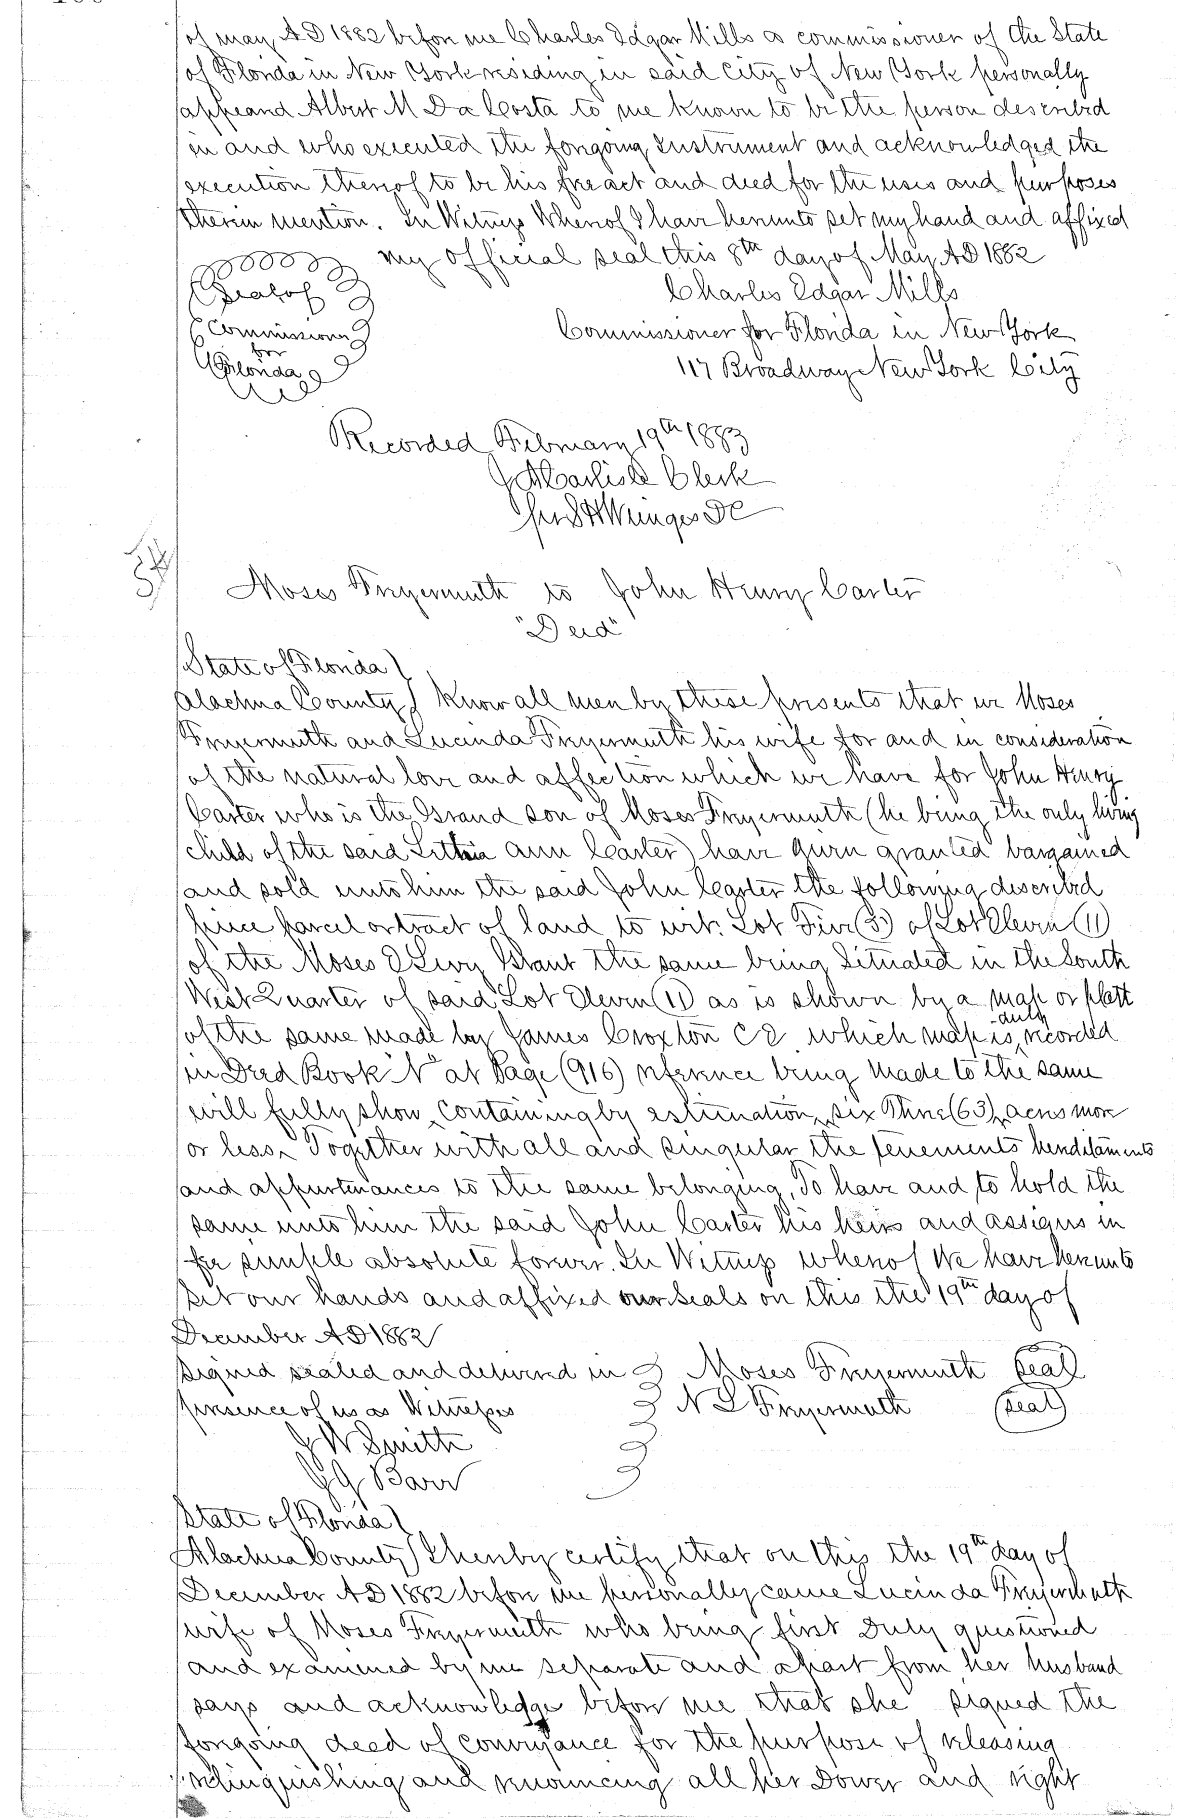 of May AD 1882 before me Charles Edgar Mills a commissioner of the State
of Florida in New York residing in said City of New York personally
appeared Albert M Da Costa to me known to be the person described
in and who executed the foregoing Instrument and acknowledged the
execution thereof to be his free act and deed for the uses and purposes
therein mention. In Witness Whereof I have hereunto set my hand and affixed
my official seal this 8th day of May AD 1882
Seal of
Commissioner
for
Florida
Charles Edgar Mills
Commissioner for Florida in New York
117 Broadway New York City
Recorded February 19th 1883
J A Carlisle Clerk
per S H Wienges DC
Moses Fryermuth to John Henry Carter
"Deed"
State of Florida
Alachua County Know all men by these presents that we Moses
Fryermuth and Lucinda Fryermuth his wife for and in consideration
of the natural love and affection which we have for John Henry
Carter who is the Grand son of Moses Fryermuth (he being the only living
child of the said Lethia ann Carter) have given granted bargained
and sold unto him the said John Carter the following described
piece parcel or tract of land to wit: Lot Five (5) of Lot Eleven (11)
of the Moses E Levy Grant the same being Situated in the South
West Quarter of said Lot Eleven (11) as is shown by a map or platt
of the same made by James Croxton C E which map is duly recorded
in Deed Book "N" at Page (916) reference being made to the same
will fully show, Containing by estimation, six Three (63) acres more
or less, Together with all and singular the tenements hereditaments
and appurtenances to the same belonging, To have and to hold the
same unto him the said John Carter his heirs and assigns in
fee simple absolute forever. In Witness whereof We have hereunto
set our hands and affixed our seals on this the 19th day of
December AD 1882
signed sealed and delivered in Moses Fryermuth Seal
presence of us as Witnesses N L Fryermuth Seal
J W Smith
J G Barr
State of Florida
Alachua County I hereby certify that on this the 19th day of
December AD 1882 before me personally came Lucinda Fryermuth
wife of Moses Fryermuth who being first Duly questioned
and examined by me separate and apart from her husband
says and acknowledge before me that she signed the
foregoing deed of conveyance for the purpose of releasing
relinquishing and renouncing all her Dower and right